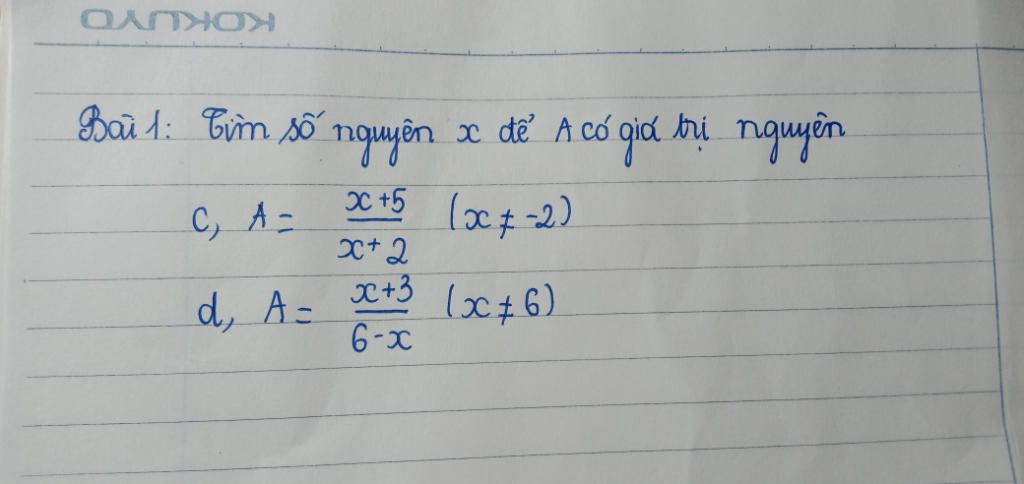 KOKUYO
Bài 1: Tìm số nguyên x để A có giá trị nguyên
c, A = \frac{x+5}{x+2} (x ≠ -2)
d, A = \frac{x+3}{6-x} (x ≠ 6)